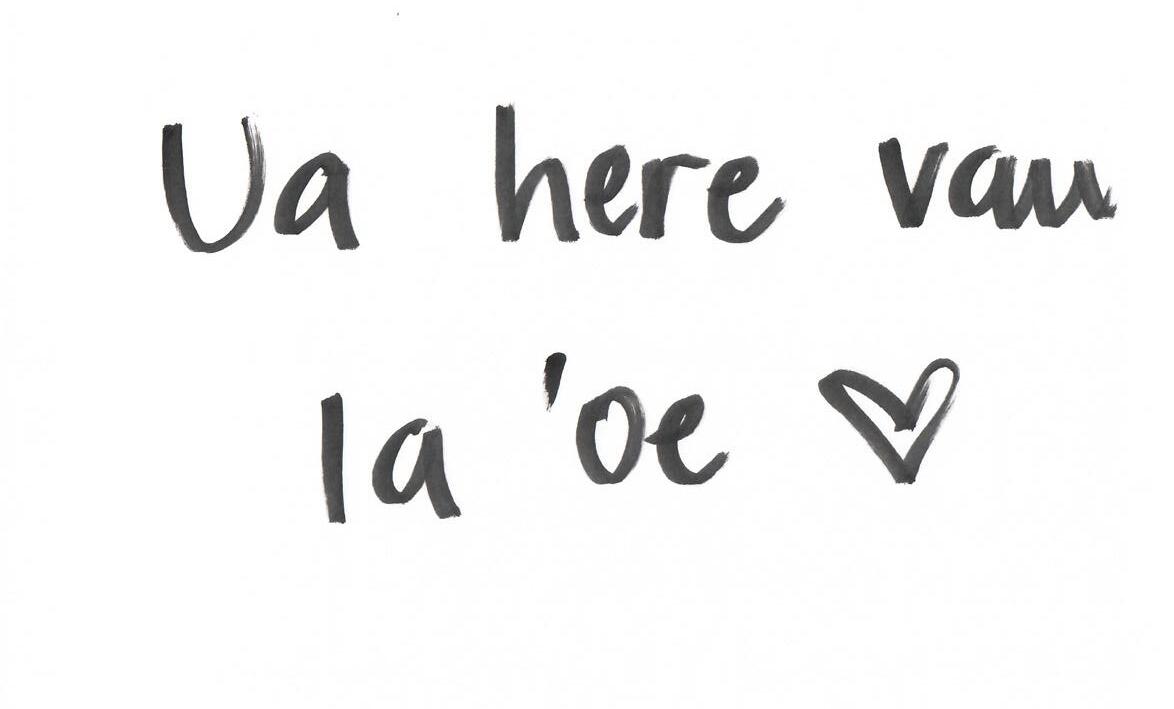 Ua here vau
Ia 'oe ♡